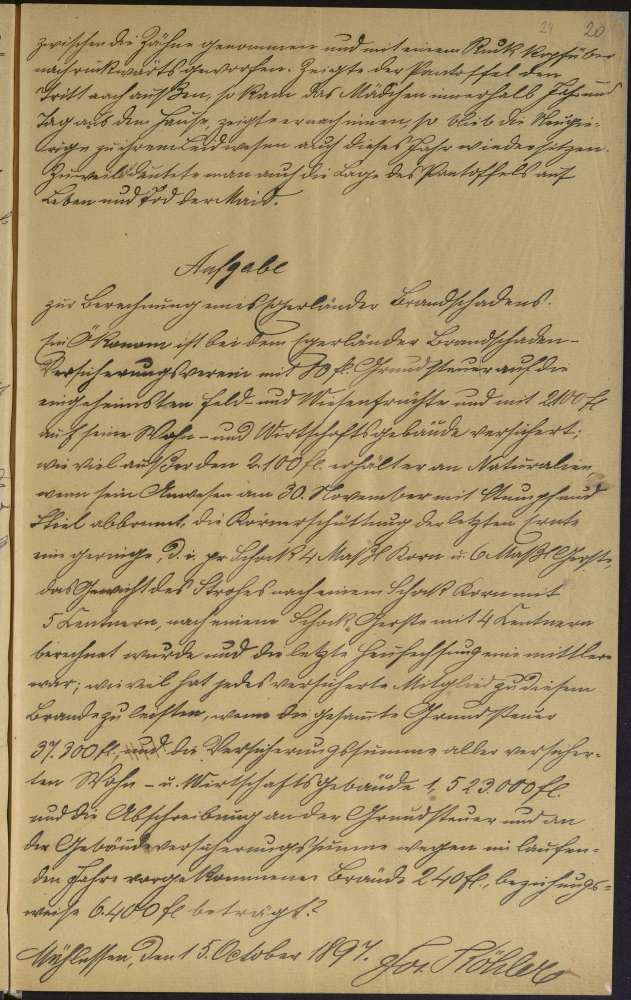 24 20
zwischen die Zähne genommen und mit einem Ruck kopfüber
nach rückwärts geworfen. Zeigte der Pantoffel den
Tritt nach außen, so kam das Mädchen innerhalb Jahr und
Tag aus dem Hause, zeigte er nach innen, so blieb die Neugie-
rige zu ihrem Leidwesen auch dieses Jahr wieder sitzen.
Zuweilen deutete man auch die Lage des Pantoffels auf
Leben und Tod der Maid.
Aufgabe
zur Berechnung eines Egerländer Brandschadens.
Ein Ökonom ist bei dem Egerländer Brandschaden-
Versicherungsverein mit 30 fl. Grundsteuer auf die
eingeheimsten Feld- und Wiesenfrüchte und mit 2100 fl
auf seine Wohn- und Wirtschaftsgebäude versichert;
wie viel außer den 2.100 fl. erhält er an Naturalien,
wenn sein Anwesen am 30. November mit Stumpf und
Stiel abbrennt, die Körnerschüttung der letzten Ernte
eine geringe, d. i. pr Schock 4 Maßl Korn u. 6 Maßl Gerste,
das Gewicht des Strohes nach einem Schock Korn mit
5 Zentnern, nach einem Schock Gerste mit 4 Zentnern
berechnet wurde und die letzte Heufechsung eine mittlere
war; wie viel hat jedes versicherte Mitglied zu diesem
Brande zu leisten, wenn die gesamte Grundsteuer
37.300 fl., und die Versicherungssumme aller versicher-
ten Wohn- u. Wirtschaftsgebäude 1,523.000 fl.
und die Abschreibung an der Grundsteuer und an
der Gebäudeversicherungssumme wegen im laufen-
den Jahre vorgekommener Brände 240 fl., beziehungs-
weise 6.400 fl beträgt?
Mühlessen, den 15. October 1897. Jos. Köhler